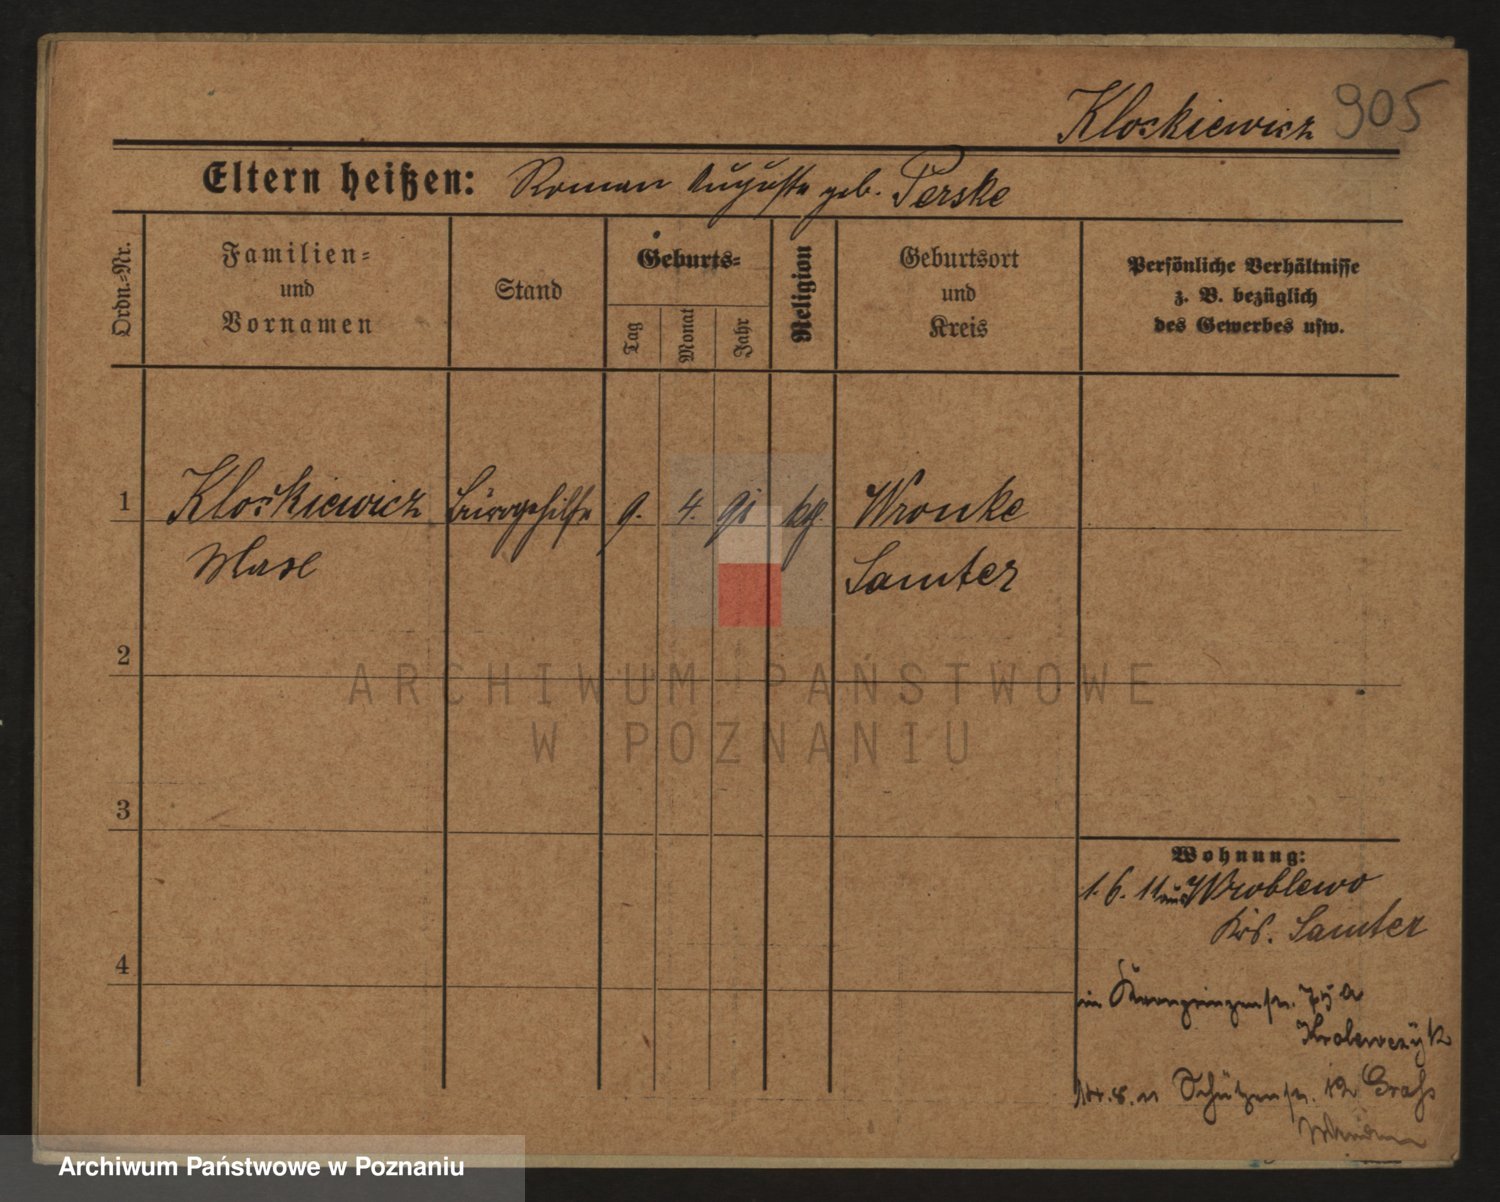 Kloskiewicz 905
Eltern heißen: Roman Auguste geb. Perske
Ordn.-Nr.
Familien-
und
Vornamen
Stand
Geburts-
Tag
Monat
Jahr
Religion
Geburtsort
und
Kreis
Persönliche Verhältnisse
z. B. bezüglich
des Gewerbes usw.
1 Kloskiewicz Bürogehilfe 9. 4. 91 ktg. Wronke
Samter
2
3
4
Wohnung:
1. 6. 11 aus Wroblewo
Krs. Samter
in Kronprinzenstr. 75 a
Krolewczÿk
Schützenstr. 12
ARCHIWUM PAŃSTWOWE
W POZNANIU
Archiwum Państwowe w Poznaniu